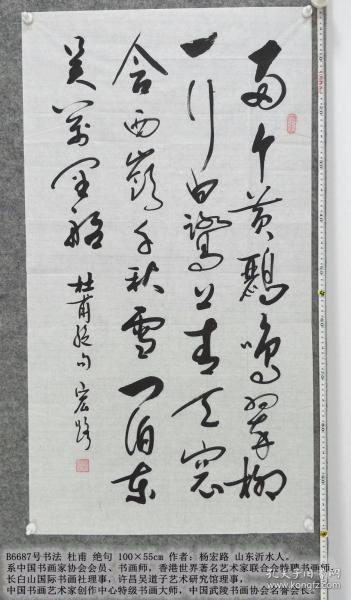 两个黄鸝鸣翠柳
一行白鷺上青天窗
含西嶺千秋雪门泊东
吴萬里船
杜甫绝句 宏路
B6687号书法 杜甫 绝句 100×55cm 作者：杨宏路 山东沂水人。
系中国书画家协会会员、书画师，香港世界著名艺术家联合会特聘书画师，
长白山国际书画社理事，许昌吴道子艺术研究馆理事，
中国书画艺术家创作中心特级书画大师，中国武陵书画协会名誉会长。